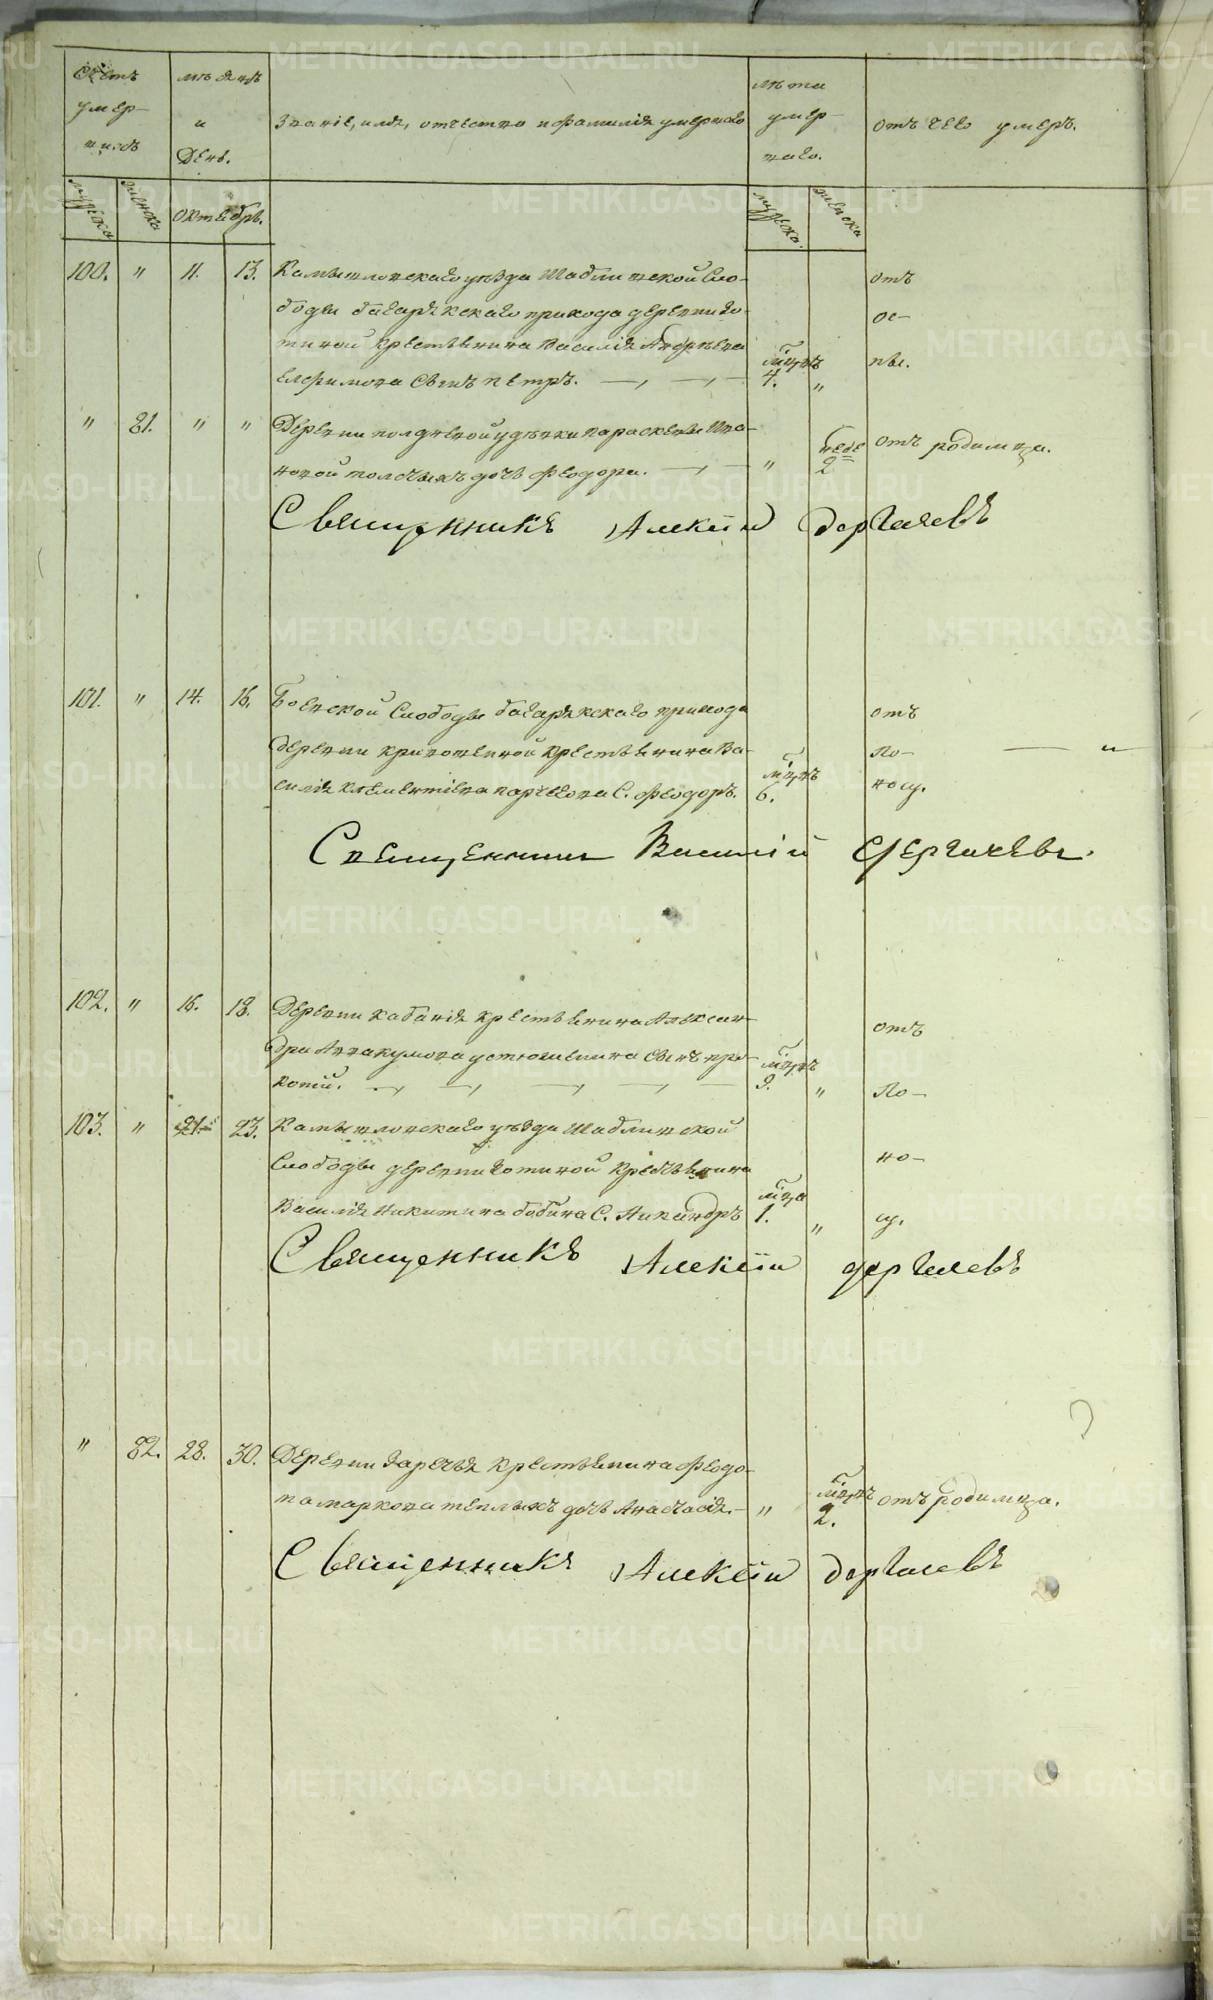 Счетъ умер-шихъ
мѣсяцъ и День.
Званіе, имя, отчество и фамилія умершаго
лѣта умер-шаго.
отъ чего умеръ.
мужеска
женска
октябрь.
мужеска.
женска
100. " 11. 13. Камышловскаго уѣзда Шаблишской Сло-
боды багарякскаго прихода деревни
крестьянина Василія Андрѣева
Елфимова Сынъ Петръ. мѣсяцъ 4. "
отъ
ос-
пы.
" 81. " " Деревни полдневой дѣвки параскевы Ива-
новой дочь Феодора. " неде 2 отъ родимца.
Священникъ Алексій Дергачевъ
101. " 14. 16. Боевской Слободы багарякскаго прихода
деревни кривошеиной крестьянина Ва-
силія Клементіева С. Феодоръ. мѣсцъ 6.
отъ
По-
носу.
Священникъ Василій Дергачевъ.
102. " 16. 18. Деревни кабанья крестьянина Алексан-
дра Аввакумова устюгшина сынъ про-
копій. мѣсцъ 9. "
отъ
По-
103. " 21. 23. Камышловскаго уѣзда Шаблишской
Слободы деревни крестьянина
Василія Никитина бобина С. Никандръ 1. "
но-
су.
Священникъ Алексій Дергачевъ
" 82. 28. 30. Деревни заречья крестьянина Феодо-
та маркова теплыхъ дочь Анастасія. " мѣсцъ 2. отъ родимца.
Священникъ Алексій Дергачевъ
METRIKI.GASO-URAL.RU